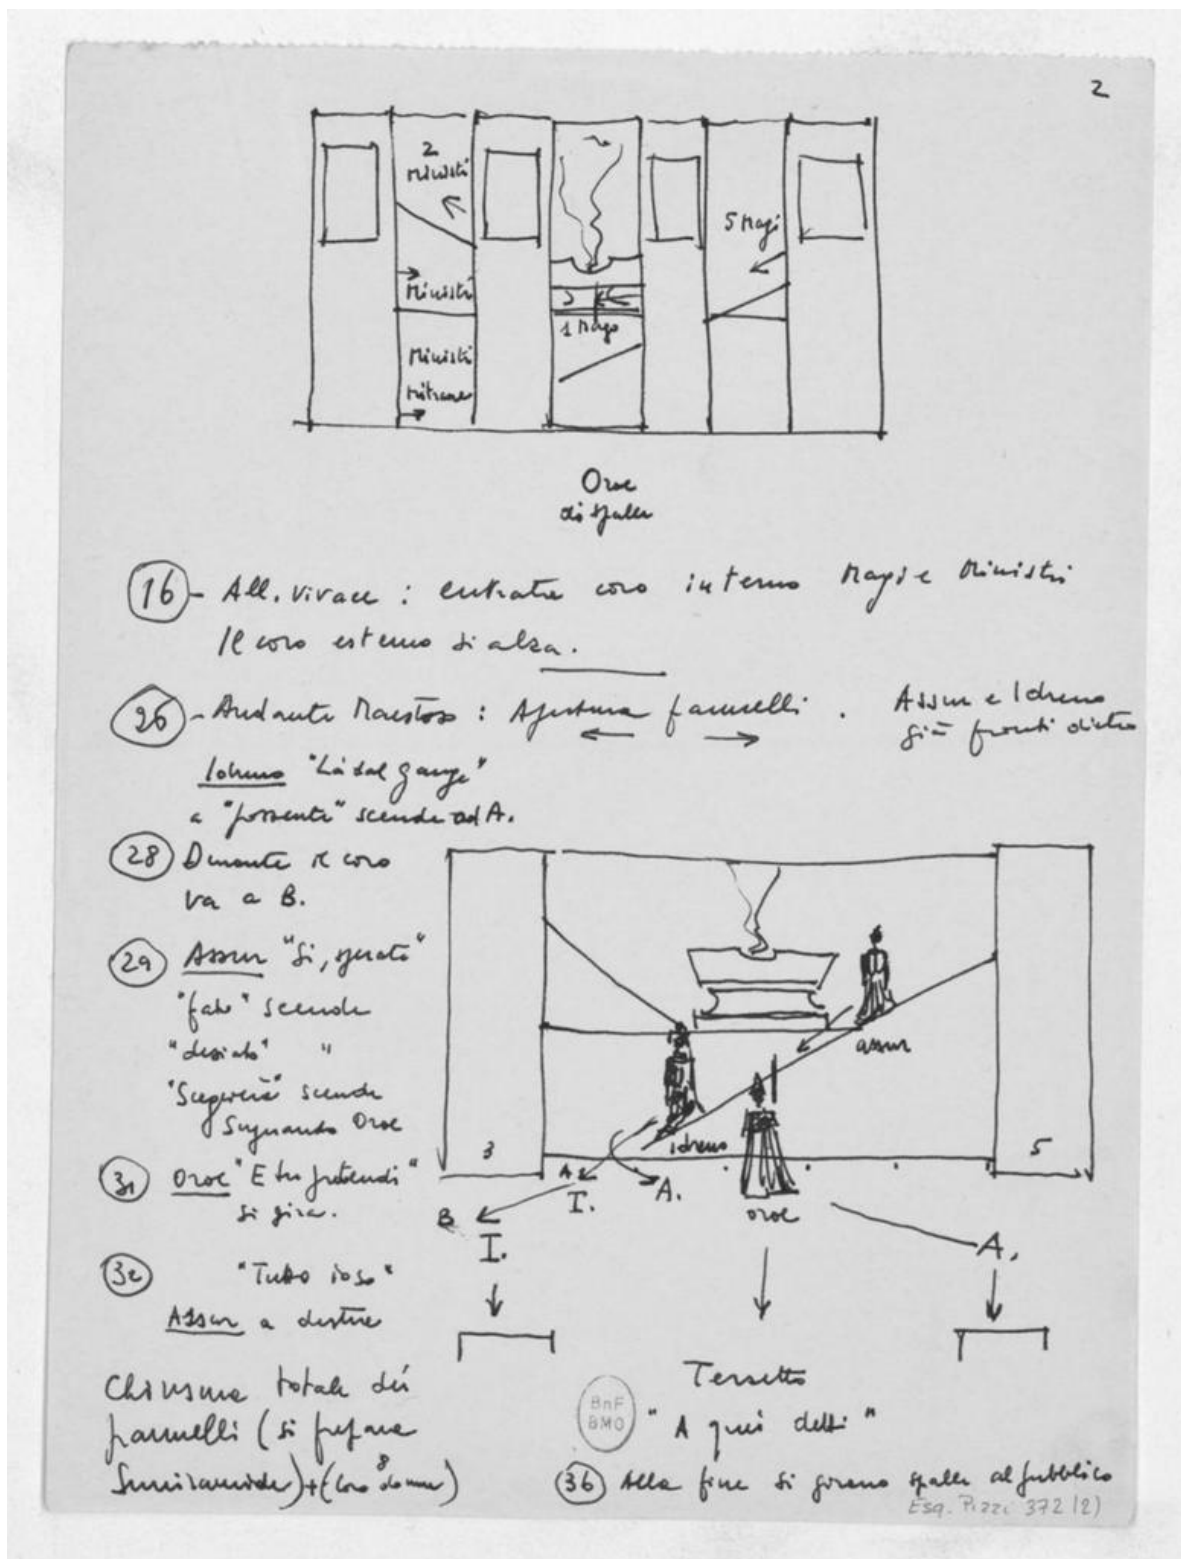 2
2
Ministri
5 Magi
Ministri
1 Mago
Ministri
Mitrane
Oroe
di spalle
16 - All. vivace : entrata coro interno Magi e Ministri
Il coro esterno si alza.
26 - Andante Maestoso : Apertura pannelli . Assur e Idreno
già pronti dietro
Idreno "Là dal Gange"
a "possente" scende ad A.
28 Durante il coro
va a B.
29 Assur "Si, sperato"
"fato" scende
"desiato" "
"Sceglierà" scende
Oroe
assur
idreno
3
5
31 Oroe "E tu pretendi"
si gira.
A
I.
A.
oroe
B
I.
A.
32 "Tutto
Assur a destra
Chiusura totale dei
pannelli (si prepara
Semiramide) + (coro 8 donne)
Terzetto
BnF
BMO
"A quei detti"
36 Alla fine si girano spalle al pubblico
Esq. Pizzi 372 (2)